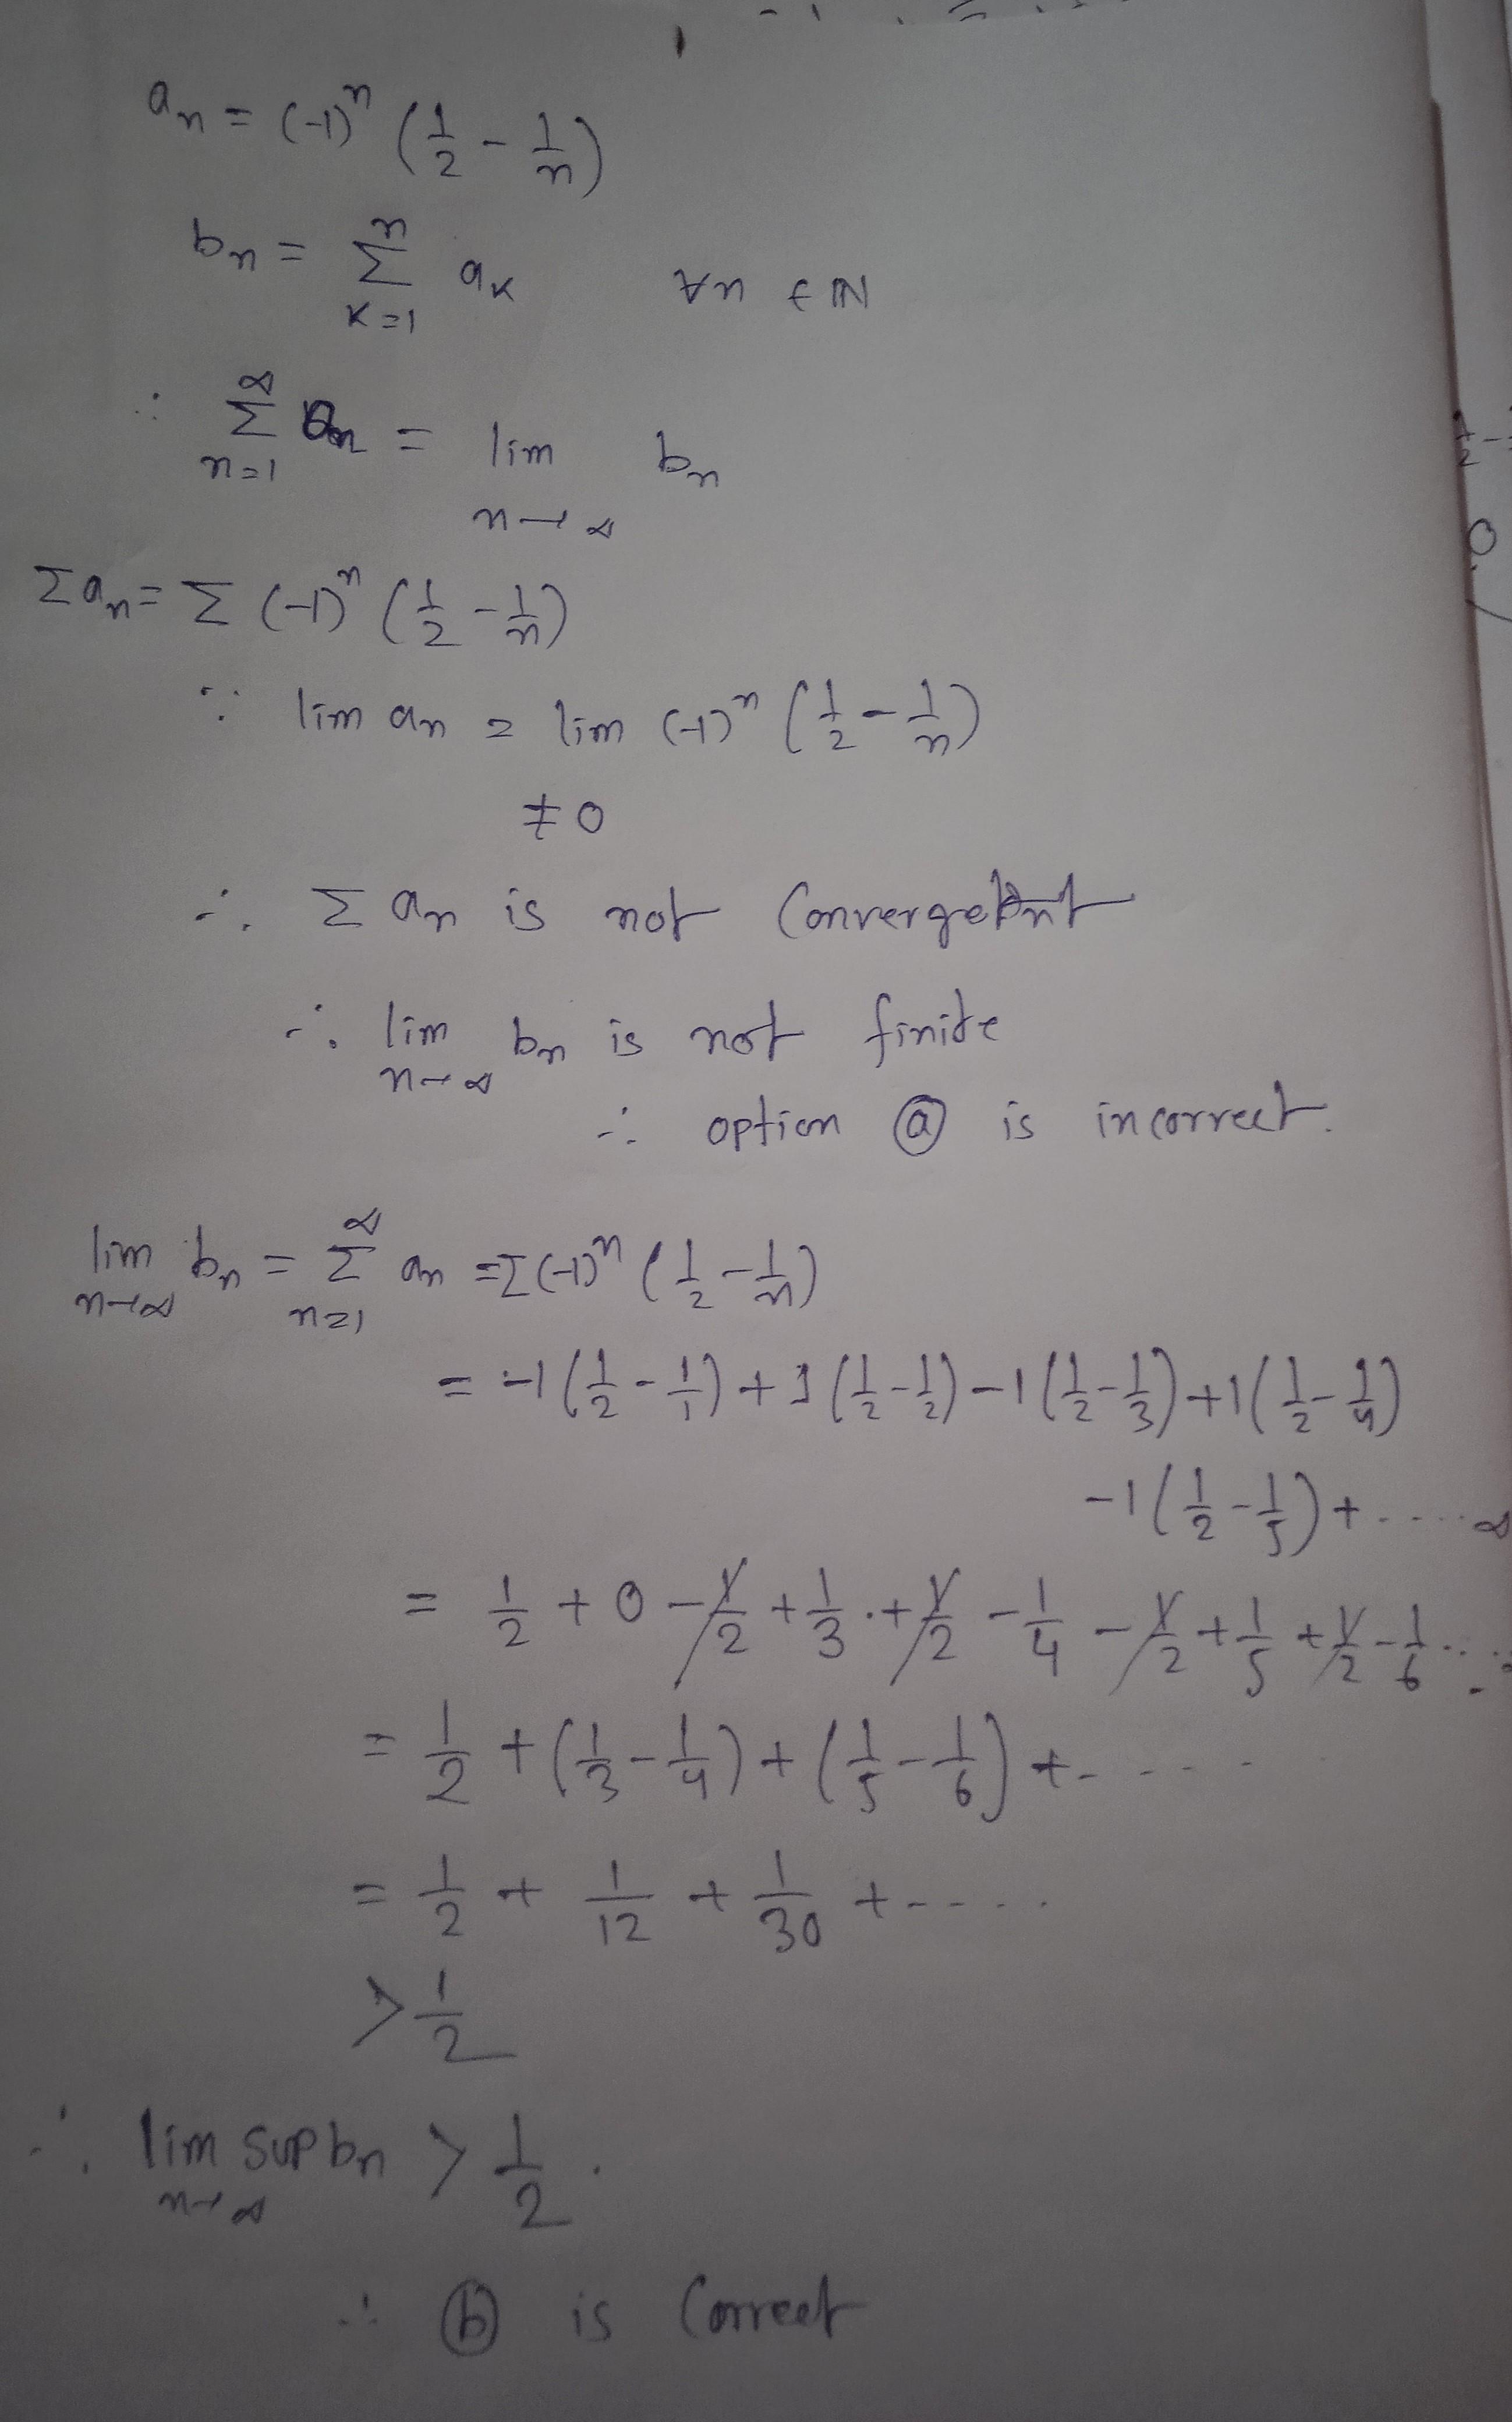 aₙ = (-1)ⁿ (1/2 - 1/n)
bₙ = Σ_{K=1}^{n} a_K ∀n ∈ ℕ
∴ Σ_{n=1}^{∞} aₙ = lim_{n→∞} bₙ
Σaₙ = Σ (-1)ⁿ (1/2 - 1/n)
∵ lim aₙ = lim (-1)ⁿ (1/2 - 1/n)
≠ 0
∴ Σ aₙ is not Convergent
∴ lim_{n→∞} bₙ is not finite
∴ option ⓐ is incorrect.
lim_{n→∞} bₙ = Σ_{n=1}^{∞} aₙ = Σ(-1)ⁿ (1/2 - 1/n)
= -1(1/2 - 1/1) + 1(1/2 - 1/2) - 1(1/2 - 1/3) + 1(1/2 - 1/4)
-1(1/2 - 1/5) + ..... ∞
= 1/2 + 0 - 1/2 + 1/3 + 1/2 - 1/4 - 1/2 + 1/5 + 1/2 - 1/6 .....
= 1/2 + (1/3 - 1/4) + (1/5 - 1/6) + .....
= 1/2 + 1/12 + 1/30 + .....
> 1/2
∴ lim sup_{n→∞} bₙ > 1/2 .
∴ ⓑ is Correct